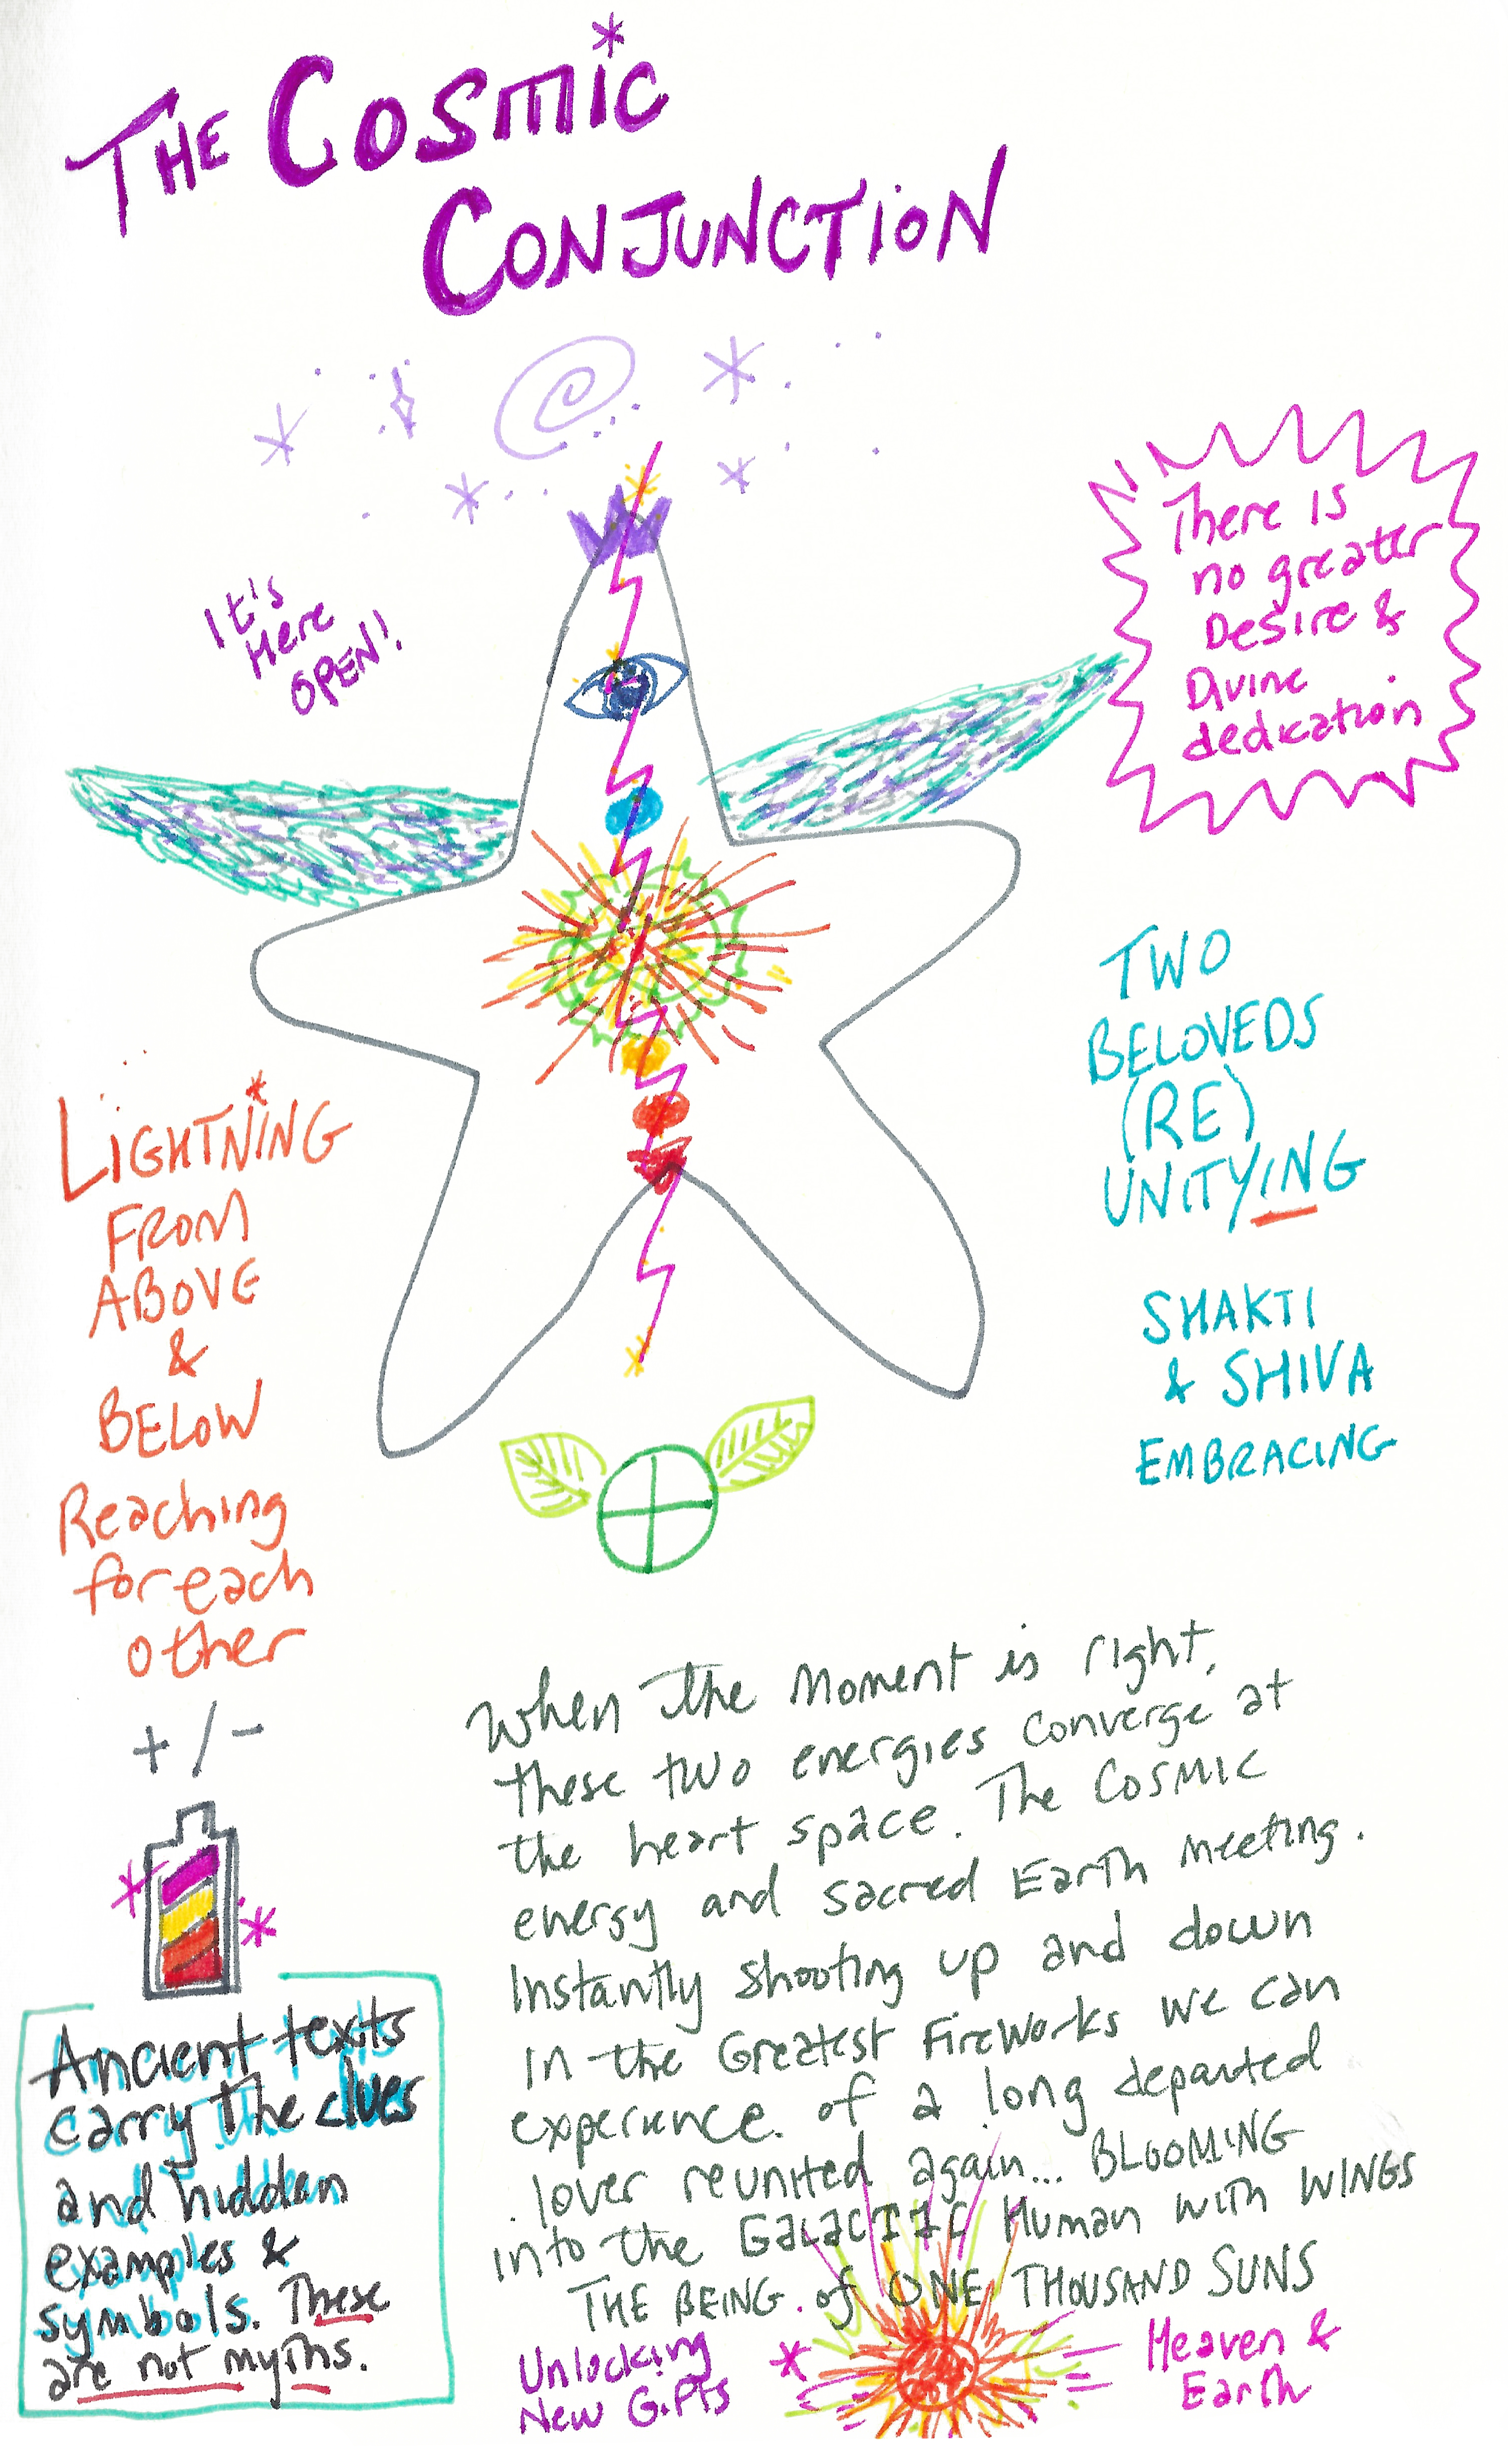 THE COSMIC
CONJUNCTION
It's
Here
OPEN!
There is
no greater
Desire &
Divine
dedication
TWO
BELOVEDS
(RE)
UNITYING
SHAKTI
& SHIVA
EMBRACING
LIGHTNING
FROM
ABOVE
&
BELOW
Reaching
for each
other
+/-
Ancient texts
carry the clues
and hidden
examples &
symbols. These
are not myths.
When the moment is right,
these two energies converge at
the heart space. The COSMIC
energy and sacred Earth meeting.
Instantly shooting up and down
in the Greatest FireWorks we can
experience. of a long departed
lover reunited again... BLOOMING
into the GALACTIC Human with WINGS
THE BEING of ONE THOUSAND SUNS
Unlocking
New Gifts
Heaven &
Earth